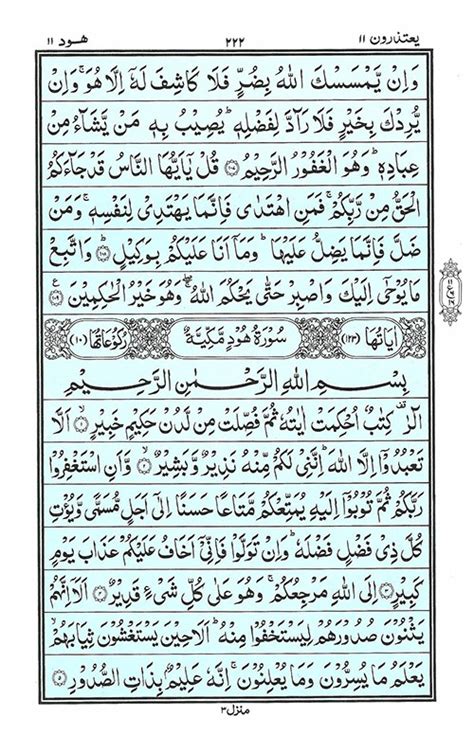 يعتذرون ۱۱ ۲۲۲ هود ۱۱
وَاِنْ يَّمْسَسْكَ اللّٰهُ بِضُرٍّ فَلَا كَاشِفَ لَهٗۤ اِلَّا هُوَ ۚ وَاِنْ
يُّرِدْكَ بِخَيْرٍ فَلَا رَآدَّ لِفَضْلِهٖ ؕ يُصِيْبُ بِهٖ مَنْ يَّشَآءُ مِنْ
عِبَادِهٖ ؕ وَهُوَ الْغَفُوْرُ الرَّحِيْمُ ۝۱۰۷ قُلْ يٰۤاَيُّهَا النَّاسُ قَدْ جَآءَكُمُ
الْحَقُّ مِنْ رَّبِّكُمْ ۚ فَمَنِ اهْتَدٰى فَاِنَّمَا يَهْتَدِيْ لِنَفْسِهٖ ۚ وَمَنْ
ضَلَّ فَاِنَّمَا يَضِلُّ عَلَيْهَا ؕ وَمَاۤ اَنَا عَلَيْكُمْ بِوَكِيْلٍ ۝۱۰۸ؕ وَاتَّبِعْ
مَا يُوْحٰۤى اِلَيْكَ وَاصْبِرْ حَتّٰى يَحْكُمَ اللّٰهُ ۖۚ وَهُوَ خَيْرُ الْحٰكِمِيْنَ ۝۱۰۹ ع
اٰيَاتُهَا (۱۲۳) سُوْرَةُ هُوْدٍ مَّكِّيَّةٌ رُكُوْعَاتُهَا (۱۰)
بِسْمِ اللّٰهِ الرَّحْمٰنِ الرَّحِيْمِ
الٓرٰ ۫ كِتٰبٌ اُحْكِمَتْ اٰيٰتُهٗ ثُمَّ فُصِّلَتْ مِنْ لَّدُنْ حَكِيْمٍ خَبِيْرٍ ۝۱ۙ اَلَّا
تَعْبُدُوْۤا اِلَّا اللّٰهَ ؕ اِنَّنِيْ لَكُمْ مِّنْهُ نَذِيْرٌ وَّبَشِيْرٌ ۝۲ۙ وَّاَنِ اسْتَغْفِرُوْا
رَبَّكُمْ ثُمَّ تُوْبُوْۤا اِلَيْهِ يُمَتِّعْكُمْ مَّتَاعًا حَسَنًا اِلٰۤى اَجَلٍ مُّسَمًّى وَّيُؤْتِ
كُلَّ ذِيْ فَضْلٍ فَضْلَهٗ ؕ وَاِنْ تَوَلَّوْا فَاِنِّيْۤ اَخَافُ عَلَيْكُمْ عَذَابَ يَوْمٍ
كَبِيْرٍ ۝۳ اِلَى اللّٰهِ مَرْجِعُكُمْ ۚ وَهُوَ عَلٰى كُلِّ شَيْءٍ قَدِيْرٌ ۝۴ اَلَاۤ اِنَّهُمْ
يَثْنُوْنَ صُدُوْرَهُمْ لِيَسْتَخْفُوْا مِنْهُ ؕ اَلَا حِيْنَ يَسْتَغْشُوْنَ ثِيَابَهُمْ ۙ
يَعْلَمُ مَا يُسِرُّوْنَ وَمَا يُعْلِنُوْنَ ۚ اِنَّهٗ عَلِيْمٌۢ بِذَاتِ الصُّدُوْرِ ۝۵
منزل ۳